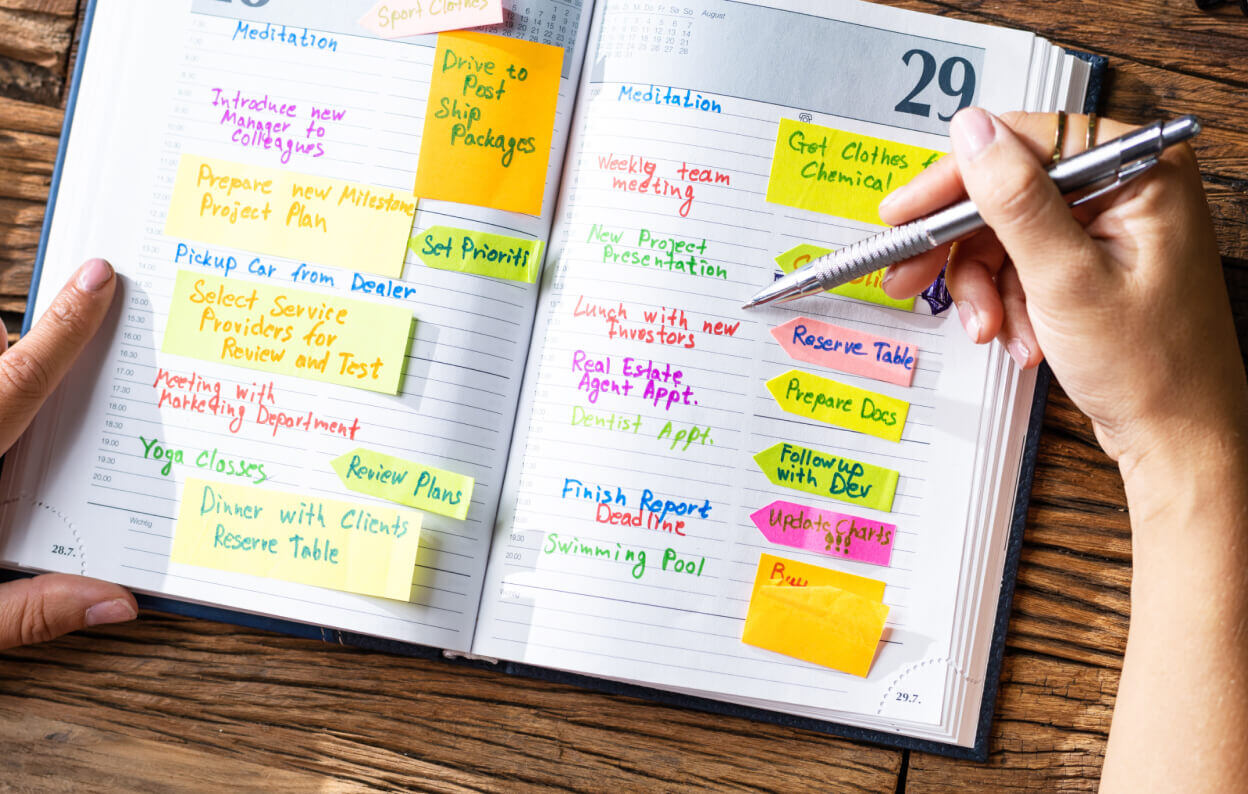 Sport Clothes
Meditation
Drive to
Post
Ship
Packages
Introduce new
Manager to
Colleagues
Prepare new Milestone
Project Plan
Set Prioriti
Pickup Car from Dealer
Select Service
Providers for
Review and Test
Meeting with
Marketing Department
Yoga Classes
Review Plans
Dinner with Clients
Reserve Table
Wichtig
28.7.
August
29
Meditation
Get Clothes
Chemical
Weekly team
meeting
New Project
Presentation
Lunch with new
Investors
Reserve Table
Real Estate
Agent Appt.
Prepare Docs
Dentist Appt.
Followup
with Dev
Finish Report
Deadline
Update Charts
!!!
Swimming Pool
29.7.